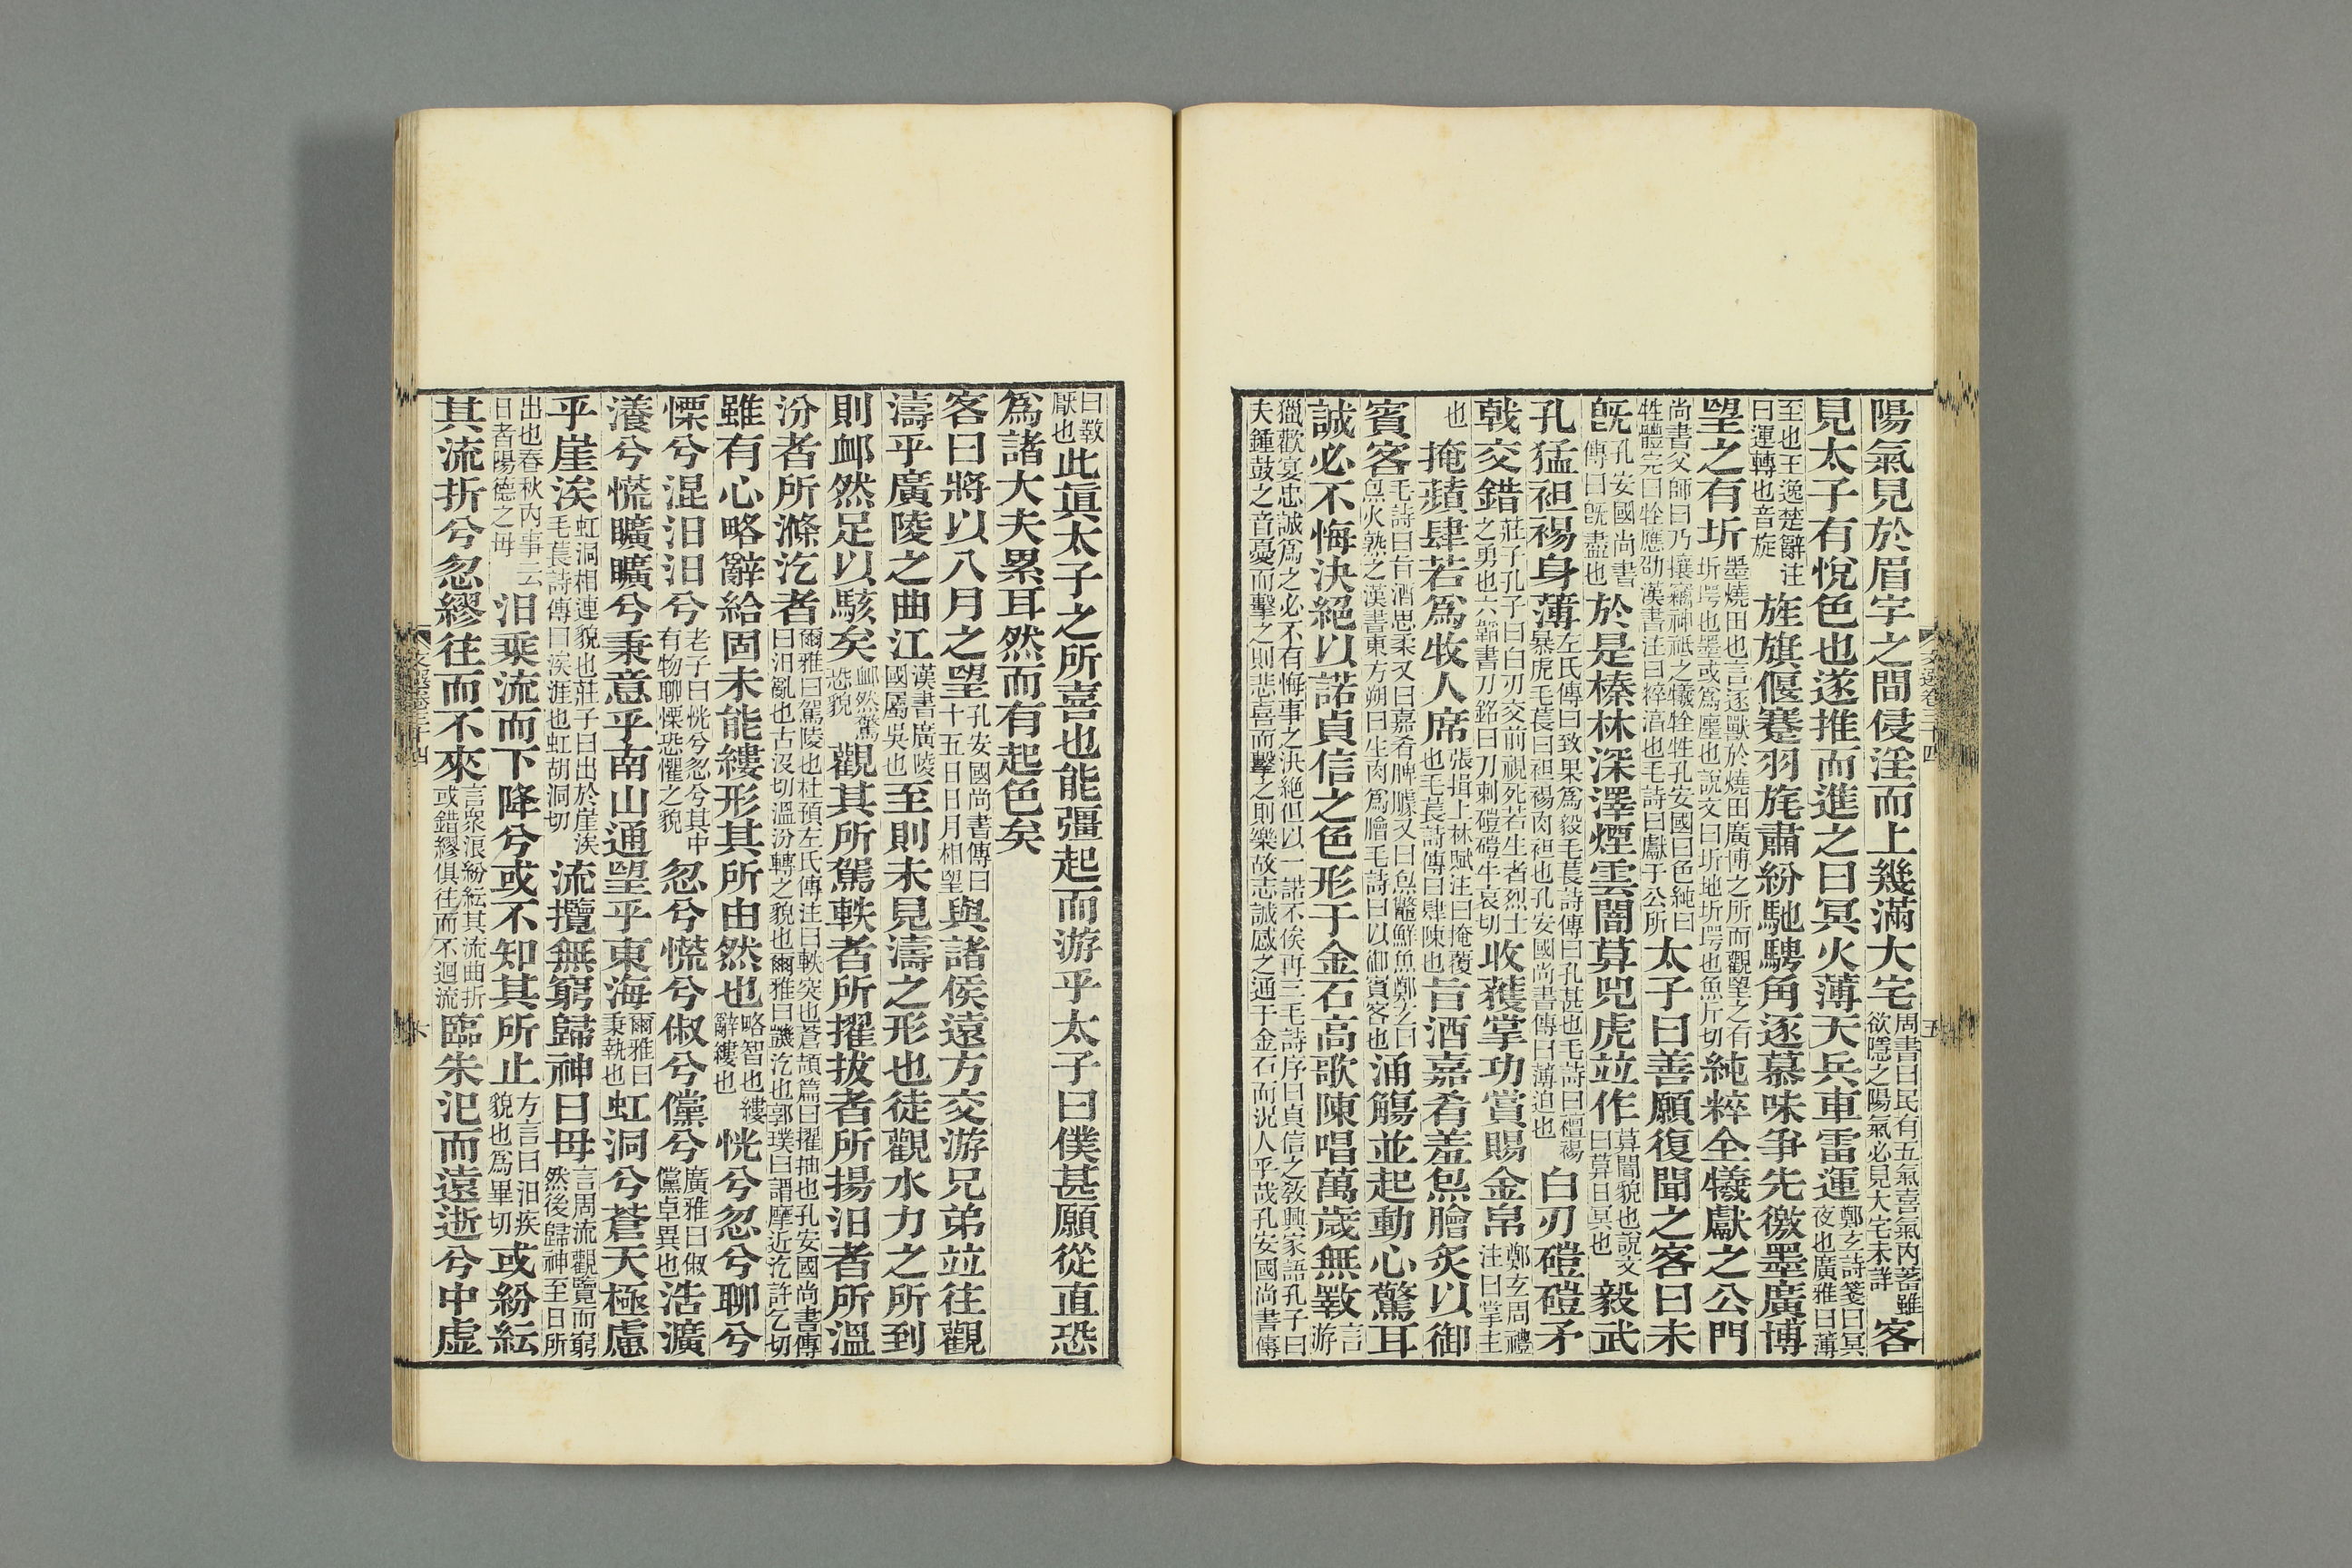 陽氣見於眉宇之間侵淫而上幾滿大宅周書曰民有五氣喜氣內蓄雖欲隱之陽氣必見大宅未詳客
見太子有悅色也遂推而進之曰冥火薄天兵車雷運鄭玄詩箋曰冥夜也廣雅曰薄
至也王逸楚辭注曰運轉也音旋旌旗偃蹇羽旄肅紛馳騁角逐慕味爭先徼墨廣博
望之有圻墨燒田也言逐獸於燒田廣博之所而觀望之有圻堮也墨或為廛也說文曰圻地圻堮也魚斤切純粹全犧獻之公門
尚書父師曰乃攘竊神祇之犧牷牲孔安國曰色純曰牲體完曰牷應劭漢書注曰粹淳也毛詩曰獻于公所太子曰善願復聞之客曰未
既孔安國尚書傳曰既盡也於是榛林深澤煙雲闇莫兕虎竝作莫闇貌也說文曰莫日冥也毅武
孔猛袒裼身薄左氏傳曰致果為毅毛萇詩傳曰孔甚也毛詩曰襢裼暴虎毛萇曰袒裼肉袒也孔安國尚書傳曰薄迫也白刃磑磑矛
戟交錯莊子孔子曰白刃交前視死若生者烈士之勇也六韜書刀銘曰刀刺磑磑牛哀切收獲掌功賞賜金帛鄭玄周禮注曰掌主
也掩蘋肆若為牧人席張揖上林賦注曰掩覆也毛萇詩傳曰肆陳也旨酒嘉肴羞炰膾炙以御
賓客毛詩曰旨酒思柔又曰嘉肴脾臄又曰炰鼈鮮魚鄭玄曰炰火熟之漢書東方朔曰生肉為膾毛詩曰以御賓客也涌觴並起動心驚耳
誠必不悔決絕以諾貞信之色形于金石高歌陳唱萬歲無斁言游
獵歡宴忠誠為之必不有悔事之決絕但以一諾不俟再三毛詩序曰貞信之敎興家語孔子曰夫鍾鼓之音憂而擊之則悲喜而擊之則樂故志誠感之通于金石而況人乎哉孔安國尚書傳
文選卷三十四
五
曰斁厭也此眞太子之所喜也能彊起而游乎太子曰僕甚願從直恐
為諸大夫累耳然而有起色矣
客曰將以八月之望孔安國尚書傳曰十五日日月相望與諸侯遠方交游兄弟竝往觀
濤乎廣陵之曲江漢書廣陵國屬吳也至則未見濤之形也徒觀水力之所到
則卹然足以駭矣卹然驚恐貌觀其所駕軼者所擢拔者所揚汨者所溫
汾者所滌汔者爾雅曰駕陵也杜預左氏傳注曰軼突也蒼頡篇曰擢抽也孔安國尚書傳曰汨亂也古沒切溫汾轉之貌也爾雅曰饑汔也郭璞曰謂摩近汔許乞切
雖有心略辭給固未能縷形其所由然也略智也縷辭縷也怳兮忽兮聊兮
慄兮混汨汨兮老子曰怳兮忽兮其中有物聊慄恐懼之貌忽兮慌兮俶兮儻兮廣雅曰俶儻卓異也浩瀇
瀁兮慌曠曠兮秉意乎南山通望乎東海爾雅曰秉執也虹洞兮蒼天極慮
乎崖涘虹洞相連貌也莊子曰出於崖涘毛萇詩傳曰涘涯也虹胡洞切流攬無窮歸神日母言周流觀覽而窮然後歸神至日所
出也春秋內事云日者陽德之母汨乘流而下降兮或不知其所止方言曰汨疾貌也為畢切或紛紜
其流折兮忽繆往而不來言眾浪紛紜其流曲折或錯繆俱往而不迴流臨朱汜而遠逝兮中虛
文選卷三十四
六